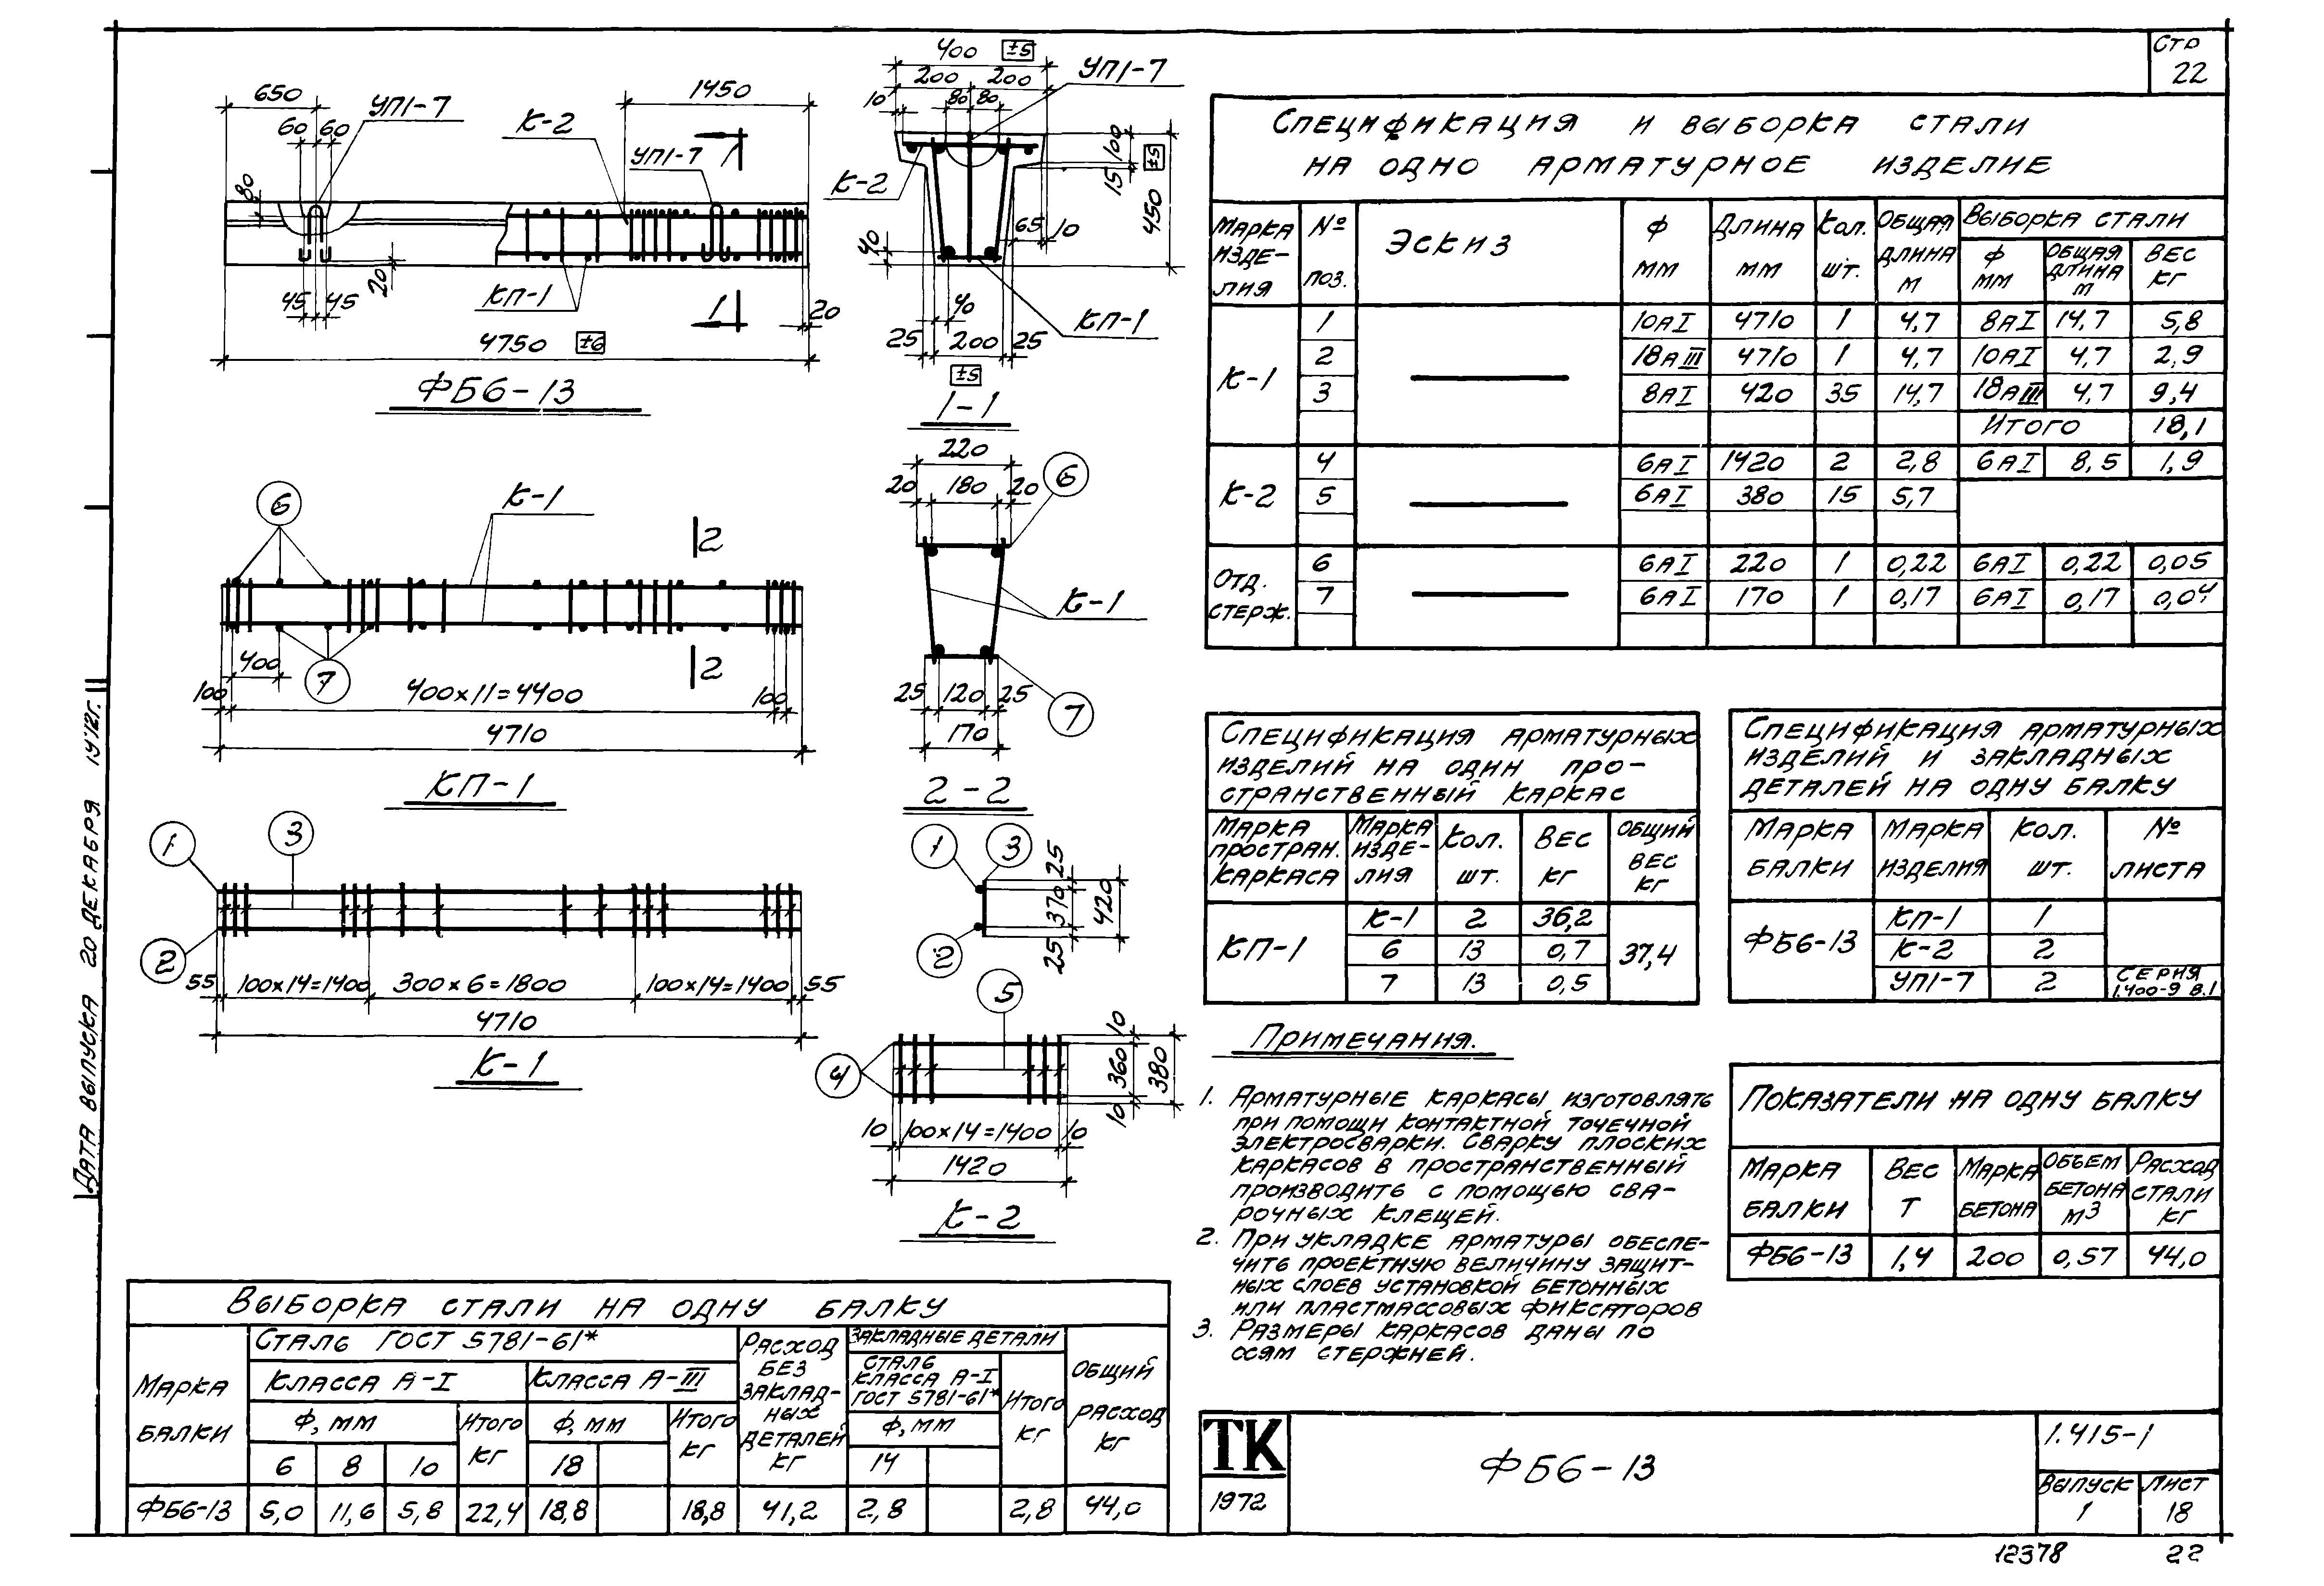 Стр
22
650
60
60
УП1-7
К-2
1450
УП1-7
1
80
45
45
20
КП-1
1
20
4750 ±6
ФБ6-13
400 ±5
УП1-7
200
200
10
80
80
100
15
450 ±5
К-2
65
10
40
40
КП-1
25
200
25
±5
1-1
6
К-1
2
400
7
2
100
400×11=4400
100
4710
КП-1
220
20
180
20
6
К-1
25
120
25
7
170
2-2
1
3
2
55
100×14=1400
300×6=1800
100×14=1400
55
4710
К-1
1
3
2
25
370
25
420
5
4
10
360
10
380
10
100×14=1400
10
1420
К-2
Спецификация и выборка стали
на одно арматурное изделие
Марка изде-лия
№ поз.
Эскиз
ф мм
Длина мм
Кол. шт.
Общая длина м
Выборка стали
ф мм
Общая длина м
Вес кг
К-1
1 10АI 4710 1 4,7 8АI 14,7 5,8
2 18АIII 4710 1 4,7 10АI 4,7 2,9
3 8АI 420 35 14,7 18АIII 4,7 9,4
Итого 18,1
К-2
4 6АI 1420 2 2,8 6АI 8,5 1,9
5 6АI 380 15 5,7
Отд. стерж.
6 6АI 220 1 0,22 6АI 0,22 0,05
7 6АI 170 1 0,17 6АI 0,17 0,04
Спецификация арматурных
изделий на один про-
странственный каркас
Марка простран. каркаса
Марка изде-лия
Кол. шт.
Вес кг
Общий вес кг
КП-1
К-1 2 36,2
6 13 0,7 37,4
7 13 0,5
Спецификация арматурных
изделий и закладных
деталей на одну балку
Марка балки
Марка изделия
Кол. шт.
№ листа
ФБ6-13
КП-1 1
К-2 2
УП1-7 2 Серия 1.400-9 В.1
Примечания.
1. Арматурные каркасы изготовлять
при помощи контактной точечной
электросварки. Сварку плоских
каркасов в пространственный
производить с помощью сва-
рочных клещей.
2. При укладке арматуры обеспе-
чить проектную величину защит-
ных слоев установкой бетонных
или пластмассовых фиксаторов
3. Размеры каркасов даны по
осям стержней.
Показатели на одну балку
Марка балки
Вес т
Марка бетона
Объем бетона м3
Расход стали кг
ФБ6-13 1,4 200 0,57 44,0
Выборка стали на одну балку
Марка балки
Сталь ГОСТ 5781-61*
Класса А-I
Класса А-III
ф, мм
Итого кг
ф, мм
Итого кг
6 8 10 18
Расход без заклад-ных деталей кг
Закладные детали
Сталь класса А-I ГОСТ 5781-61*
ф, мм
14
Итого кг
Общий расход кг
ФБ6-13 5,0 11,6 5,8 22,4 18,8 18,8 41,2 2,8 2,8 44,0
ТК
1972
ФБ6-13
1.415-1
Выпуск
1
Лист
18
12378
22
Дата выпуска 20 декабря 1972г.